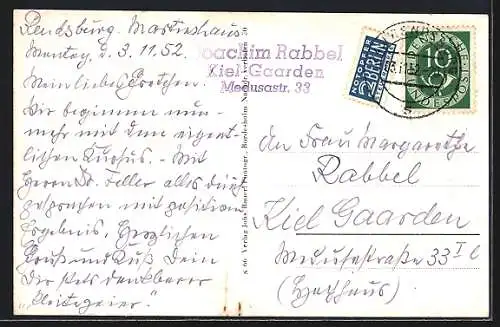 Rendsburg. Martinshaus
Montag, d. 3.11.52.
Mein liebes Gretchen.
Wir beginnen nun-
mehr mit dem eigent-
lichen Kursus. - Mit
Herrn Dr. Feller alles durch-
gesprochen mit positivem
Ergebnis. Herzlichen
Gruß und Kuß Dein
Dir stets dankbarer
Joachim Rabbel
Kiel-Gaarden
Medusastr. 33
NOTOPFER
2 BERLIN
STEUERMARKE
DEUTSCHE
10
BUNDESPOST
An Frau Margarethe
Rabbel
Kiel Gaarden
Medusastraße 33 I